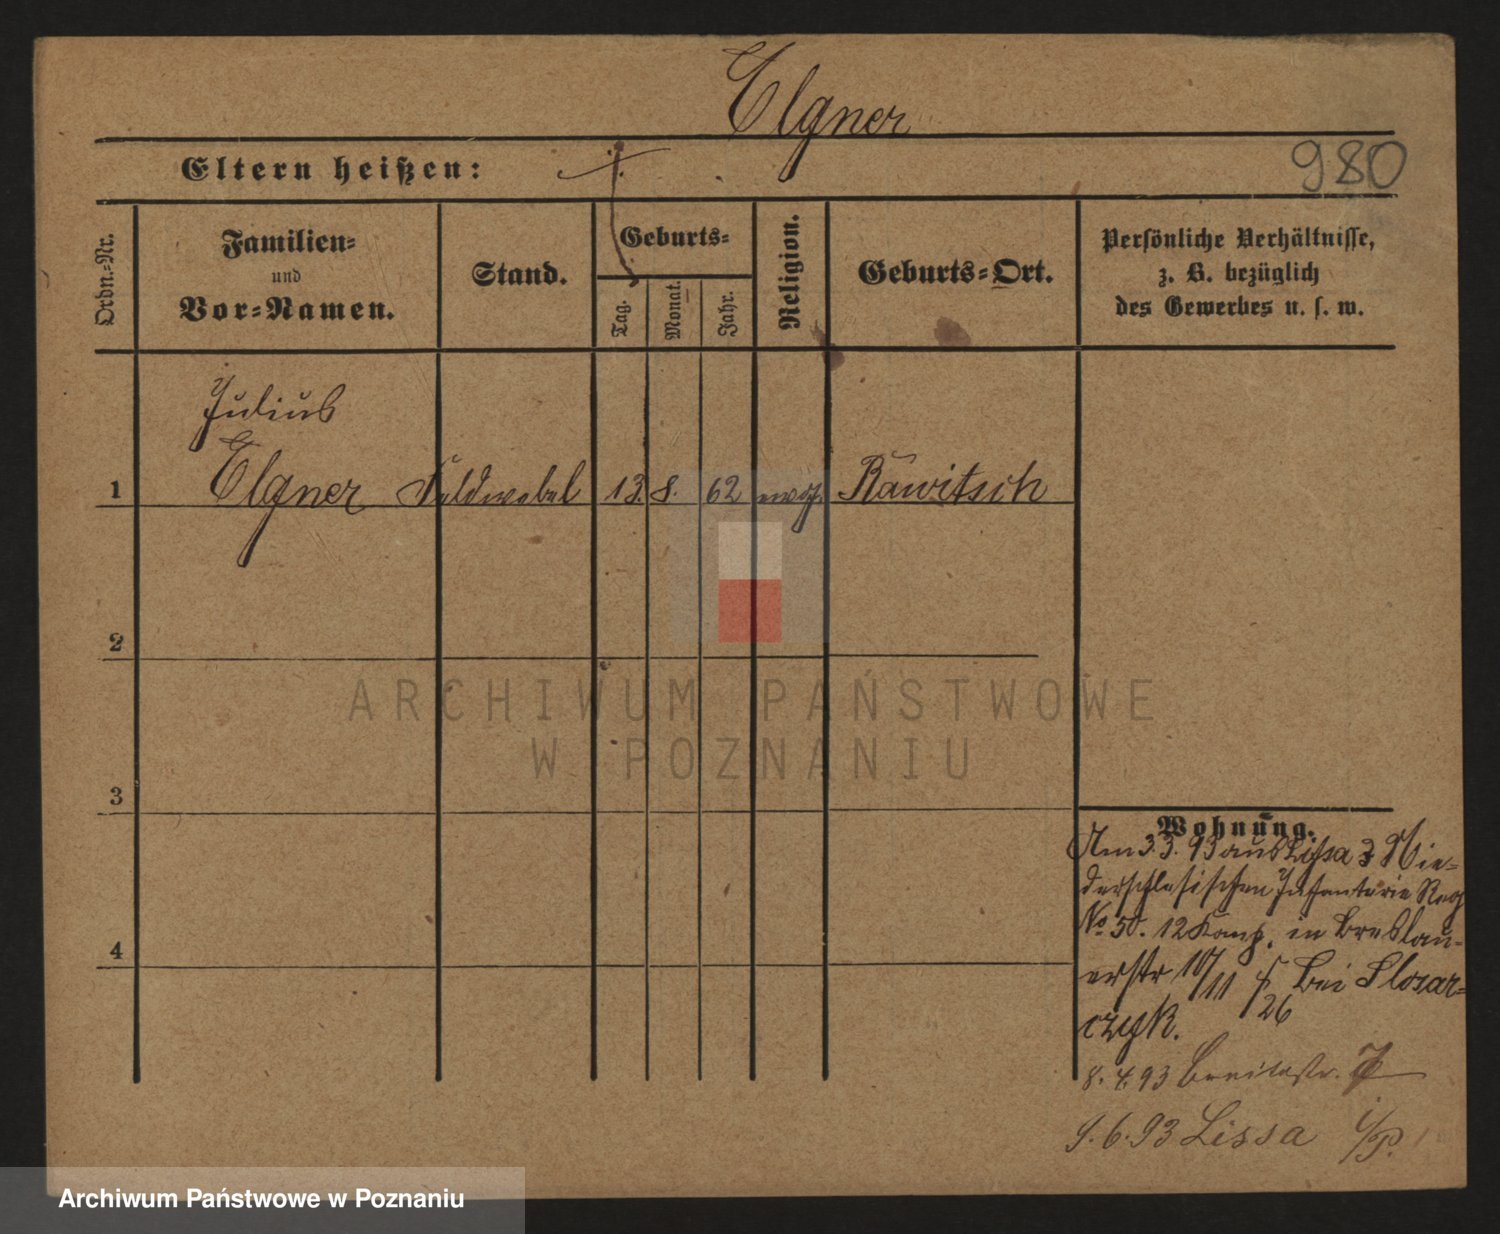 Elgner
Eltern heißen:
980
Ordn.-Nr.
Familien-
und
Vor-Namen.
Stand.
Geburts-
Tag.
Monat.
Jahr.
Religion.
Geburts-Ort.
Persönliche Verhältnisse,
z. B. bezüglich
des Gewerbes u. s. w.
Julius
1 Elgner Feldwebel 13. 8. 62 evgl. Rawitsch
2
3
4
Wohnung.
Am 3.3.93 aus Lissa 3 Nie-
derschlesischen Infanterie Reg
No 50. 12 Komp. in Breslau-
erstr 10/11 bei Slosar-
czyk.
26
8. 4. 93 Breitestr. 7
9. 6. 93 Lissa i/P.
ARCHIWUM PAŃSTWOWE
W POZNANIU
Archiwum Państwowe w Poznaniu